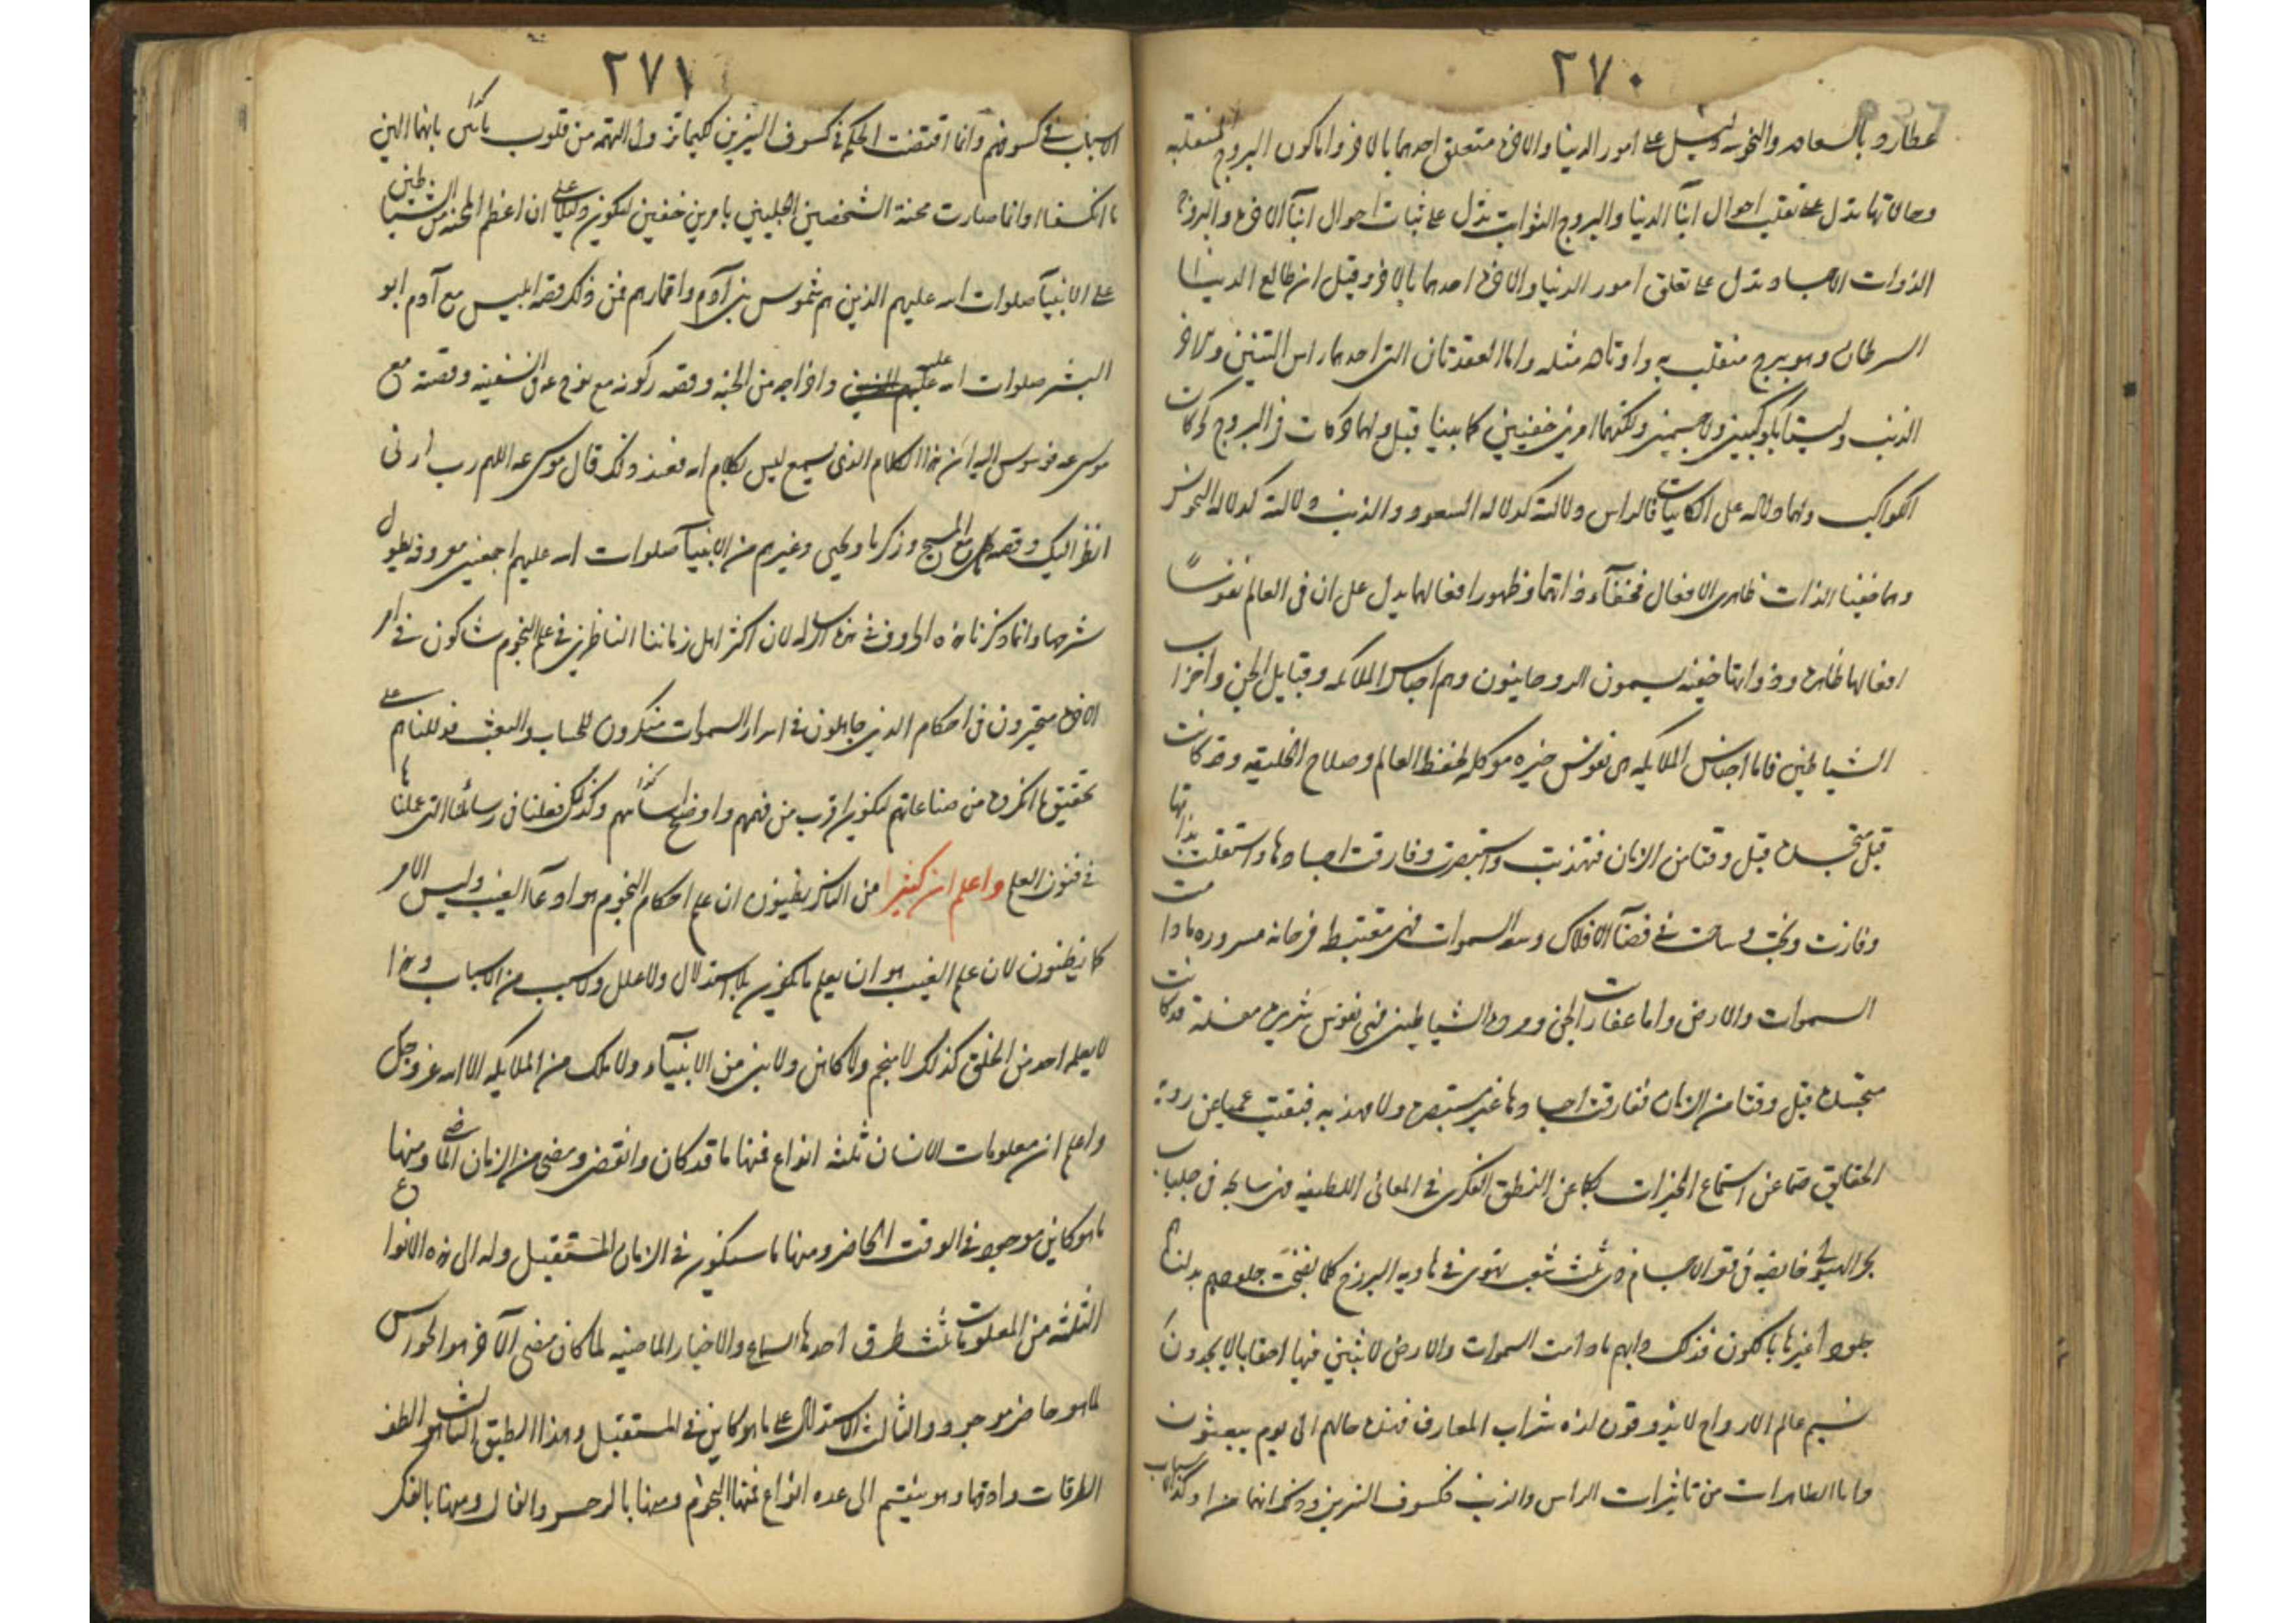 ٢٧٠
عطارد بالسعاده والنحوسه دليل على امور الدنيا والاخره متعلق احدهما بالاخر واما كون البروج المنقلبه
وحالاتها تدل على تقلب احوال ابنآ الدنيا والبروج الثوابت تدل على ثبات احوال ابنآ الاخره والبروج
الذوات الاجساد تدل على تعلق امور الدنيا والاخره احدهما بالاخر وقيل ان طالع الدنيا
السرطان وهو برج منقلب واوتاده مثله واما العقدتان التى احدهما راس التنين والاخر
الذنب وليستا بكوكبين ولا جسمين ولكنهما امرين خفيين كما بينا قبل ولهما حركات فى البروج كحركات
الكواكب ولهما دلاله على الكاينات فالراس دلالته كدلاله السعود والذنب دلالته كدلاله النحوس
وهما خفيا الذات ظاهرى الافعال فخفآء ذاتهما وظهور افعالهما يدل على ان فى العالم نفوسًا
افعالها ظاهره وذواتها خفيه يسمون الروحانيون وهم اجناس الملائكه وقبايل الجن واحزاب
الشياطين فاما اجناس الملايكه هى نفوس خيره موكله لحفظ العالم وصلاح الخليقه وقد كانت
متجسده قبل وقتا من الزمان فتهذبت واستبصرت وفارقت اجسادها واستقلت بذاتها
وفازت ونجت وساحت فى فضآ الافلاك وسعه السموات فهى مغتبطه فرحانه مسروره ما دامت
السموات والارض واما عفاريت الجن ومرده الشياطين فهى نفوس شريره مفسده قد كانت
متجسده قبل وقتا من الزمان ففارقت اجسادها غير مستبصره ولا مهذبه فبقيت عميا عن روية
الحقايق صما عن استماع الخيرات بكما عن النطق الفكرى فى المعانى اللطيفه فهى سابحه فى
بحر الهيولى غايصه فى قعر الاجسام ذى ثلث شعب تهوى فى هاويه البرزخ كلما نضجت جلودهم بدلناهم
جلودا غيرها بالكون فذلك دابهم ما دامت السموات والارض لابثين فيها احقابا لا يجدون
نسيم عالم الارواح لا يذوقون لذه شراب المعارف فهذه حالهم الى يوم يبعثون
واما الظاهرات من تاثيرات الراس والذنب فكسوف النيرين
٢٧١
الاسباب فى كسوفهم وانما اقتضت الحكمه فى كسوف النيرين كليما تزول التهمه من قلوب بانهما الهين
ما انكسفا وانما صارت محنة الشخصين الجليلين بامرين خفيين ليكون دليلا على ان اعظم المحنه من الشياطين
على الانبيآ صلوات الله عليهم الذين هم شموس بنى آدم واقمارهم فمن ذلك قصه ابليس مع آدم ابو
البشر صلوات الله عليه واخراجه من الجنه وقصه ركوبه مع نوح عه فى السفينه وقصته مع
موسى عه فوسوس اليه ان هذا الكلام الذى يسمع ليس بكلام الله فعند ذلك قال موسى عه اللهم رب ارنى
انظر اليك وقصه مع المسيح وزكريا ويحيى وغيرهم من الانبيآ صلوات الله عليهم اجمعين معروفه يطول
شرحها وانما ذكرنا هذه الحروف فى هذه الرساله لان اكثر اهل زماننا الناظرين فى علم النجوم شاكون فى امر
الاخره متحيرون فى احكام الدين جاهلون فى اسرار السموات منكرون للحساب والبعث فدللناهم على
تحقيق ما انكروه من صناعاتهم ليكون اقرب من فهمهم واوضح وكذلك فعلنا فى رسائلنا التى عملناها
فى فنون العلم واعلم ان كثيرا من الناس يظنون ان علم احكام النجوم هو ادعآ الغيب وليس الامر
كما يظنون لان علم الغيب هو ان يعلم ما يكون بلا استدلال ولا علل ولا سبب من الاسباب وهذا
لا يعلمه احد من الخلق كذلك لا منجم ولا كاهن ولا نبى من الانبيآء ولا ملك من الملايكه الا الله عز وجل
واعلم ان معلومات الانسان ثلثه انواع فمنها ما قد كان وانقضى ومضى من الزمان الماضى ومنها
ما هو كاين موجود فى الوقت الحاضر ومنها ما سيكون فى الزمان المستقبل وله الى هذه الانواع
الثلثه من المعلومات ثلث طرق احدها السماع والاخبار الماضيه لما كان مضى الآخر هو الحواس
لما هو حاضر موجود والثالث الاستدلال على ما هو كاين فى المستقبل وهذا الطريق الثالث هو الطف
الطرقات وادقها وهو ينقسم الى عده انواع فمنها النجوم ومنها بالزجر والفال ومنها بالفكر